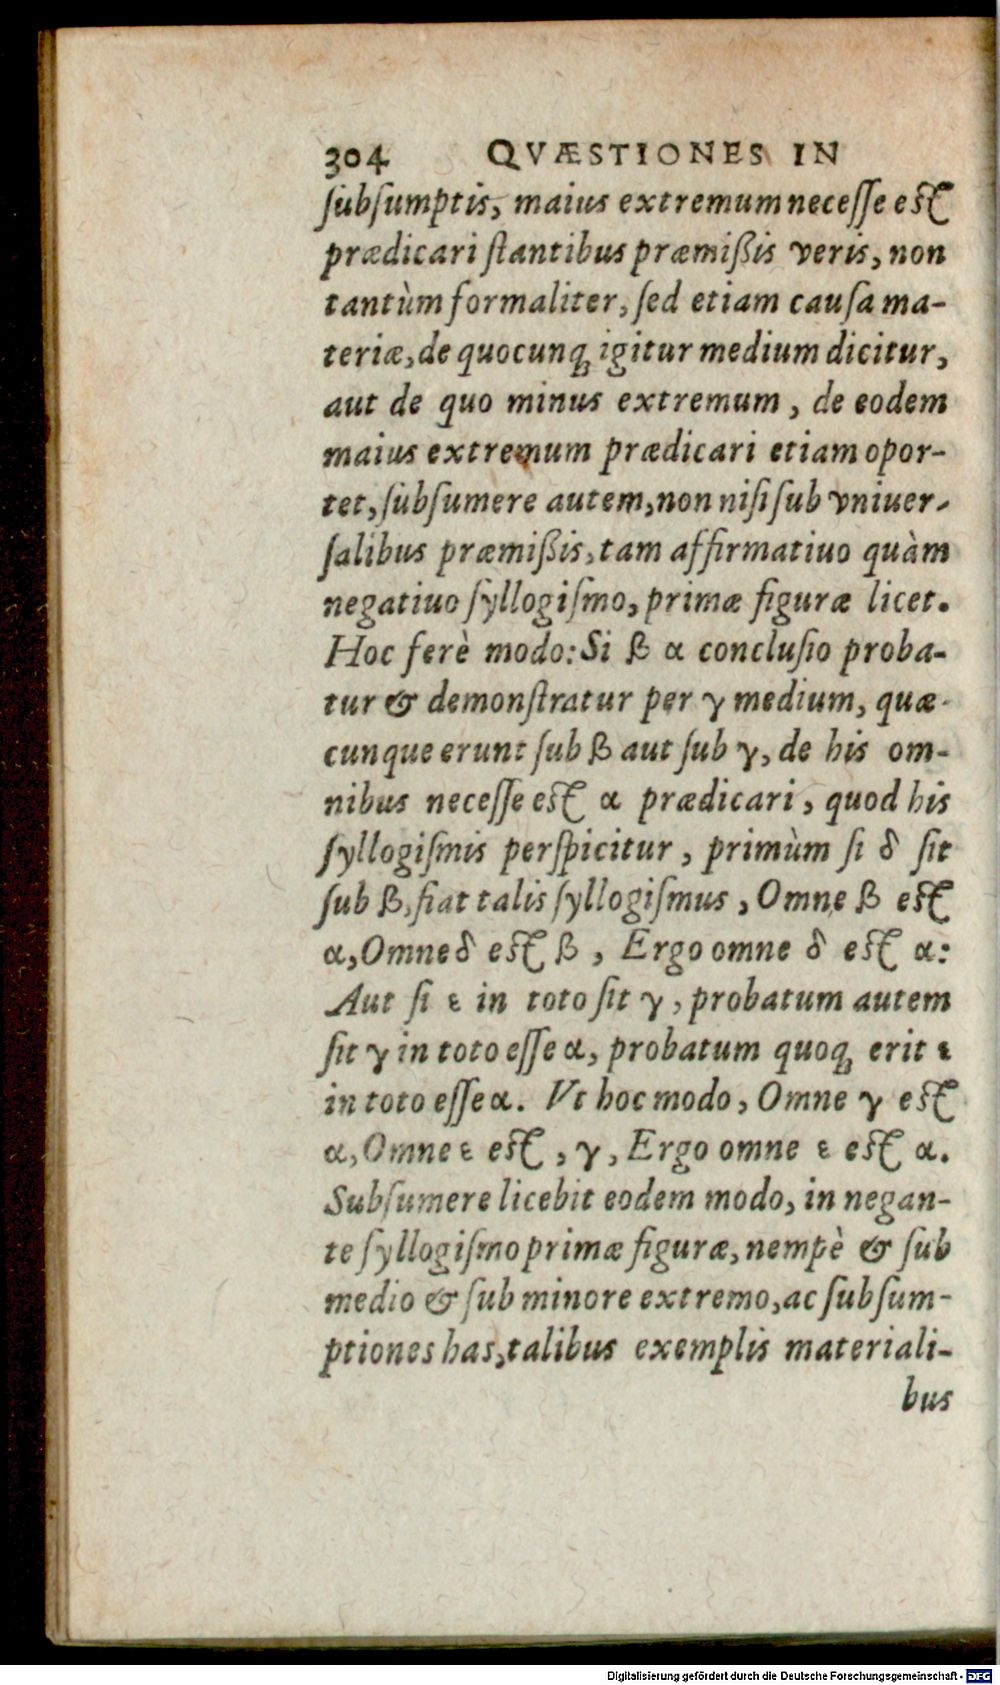 304 QVÆSTIONES IN
ſubſumptis, maius extremum neceſſe eſt
prædicari ſtantibus præmiſsis veris, non
tantùm formaliter, ſed etiam cauſa ma-
teriæ, de quocunqꝫ igitur medium dicitur,
aut de quo minus extremum, de eodem
maius extremum prædicari etiam opor-
tet, ſubſumere autem, non niſi ſub vniuer-
ſalibus præmiſsis, tam affirmatiuo quàm
negatiuo ſyllogiſmo, primæ figuræ licet.
Hoc ferè modo: Si β α concluſio proba-
tur & demonſtratur per γ medium, quæ-
cunque erunt ſub β aut ſub γ, de his om-
nibus neceſſe eſt α prædicari, quod his
ſyllogiſmis perſpicitur, primùm ſi δ ſit
ſub β, fiat talis ſyllogiſmus, Omne β eſt
α, Omne δ eſt β, Ergo omne δ eſt α:
Aut ſi ε in toto ſit γ, probatum autem
ſit γ in toto eſſe α, probatum quoqꝫ erit ε
in toto eſſe α. Vt hoc modo, Omne γ eſt
α, Omne ε eſt, γ, Ergo omne ε eſt α.
Subſumere licebit eodem modo, in negan-
te ſyllogiſmo primæ figuræ, nempè & ſub
medio & ſub minore extremo, ac ſubſum-
ptiones has, talibus exemplis materiali-
bus
Digitalisierung gefördert durch die Deutsche Forschungsgemeinschaft - DFG